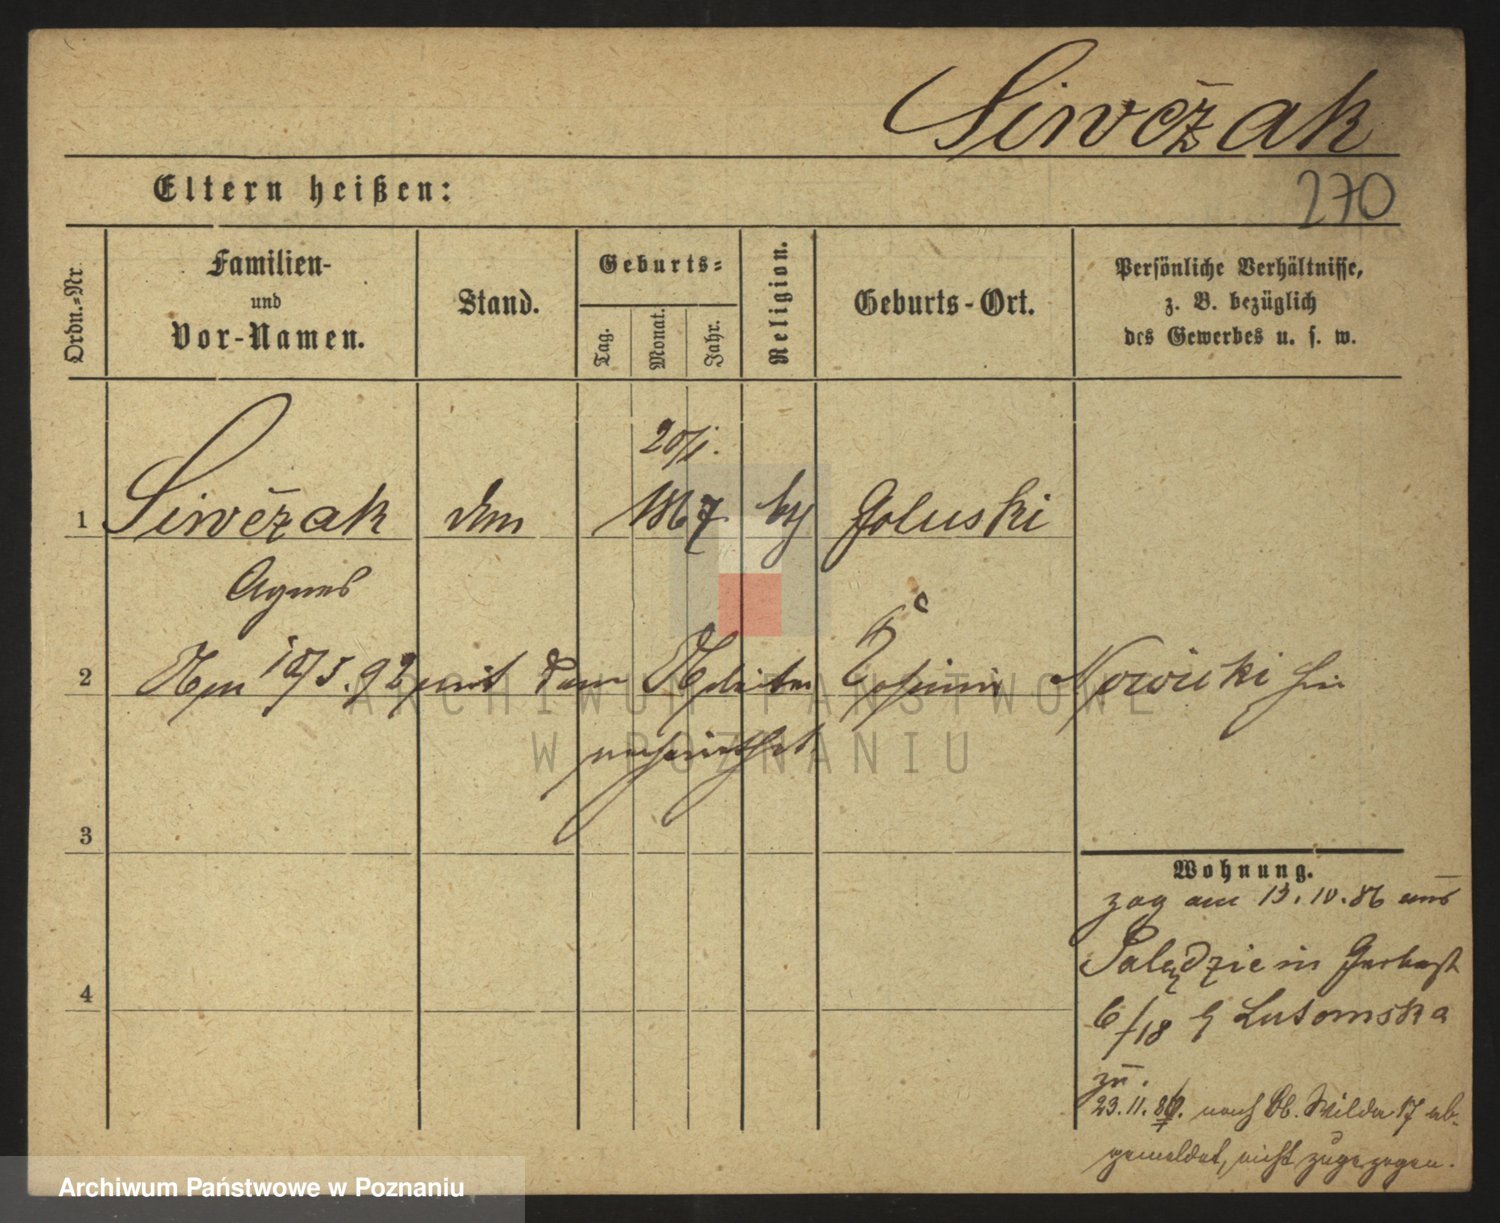 Siwczak
Eltern heißen:
270
Ordn.-Nr.
Familien-
und
Vor-Namen.
Stand.
Geburts-
Tag.
Monat.
Jahr.
Religion.
Geburts-Ort.
Persönliche Verhältnisse,
z. B. bezüglich
des Gewerbes u. s. w.
20/1.
1 Siwczak 1867 Goluski
Agnes
2 Am 10/5.92 mit dem Arbeiter Nowicki hier
verheirathet
3
4
Wohnung.
zog am 13.10.86 aus
Palędzie in
6/18 Lutomska
zu.
23.11.86. nach Ob. Wilda 17 ab-
gemeldet, nicht zugezogen.
ARCHIWUM PAŃSTWOWE
W POZNANIU
Archiwum Państwowe w Poznaniu